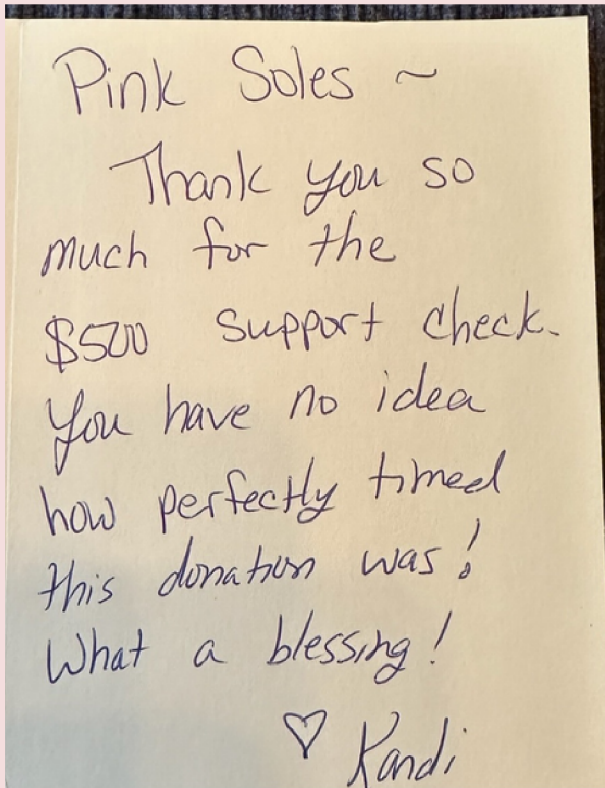 Pink Soles ~
Thank you so
much for the
$500 support check.
You have no idea
how perfectly timed
this donation was!
What a blessing!
♡ Kandi